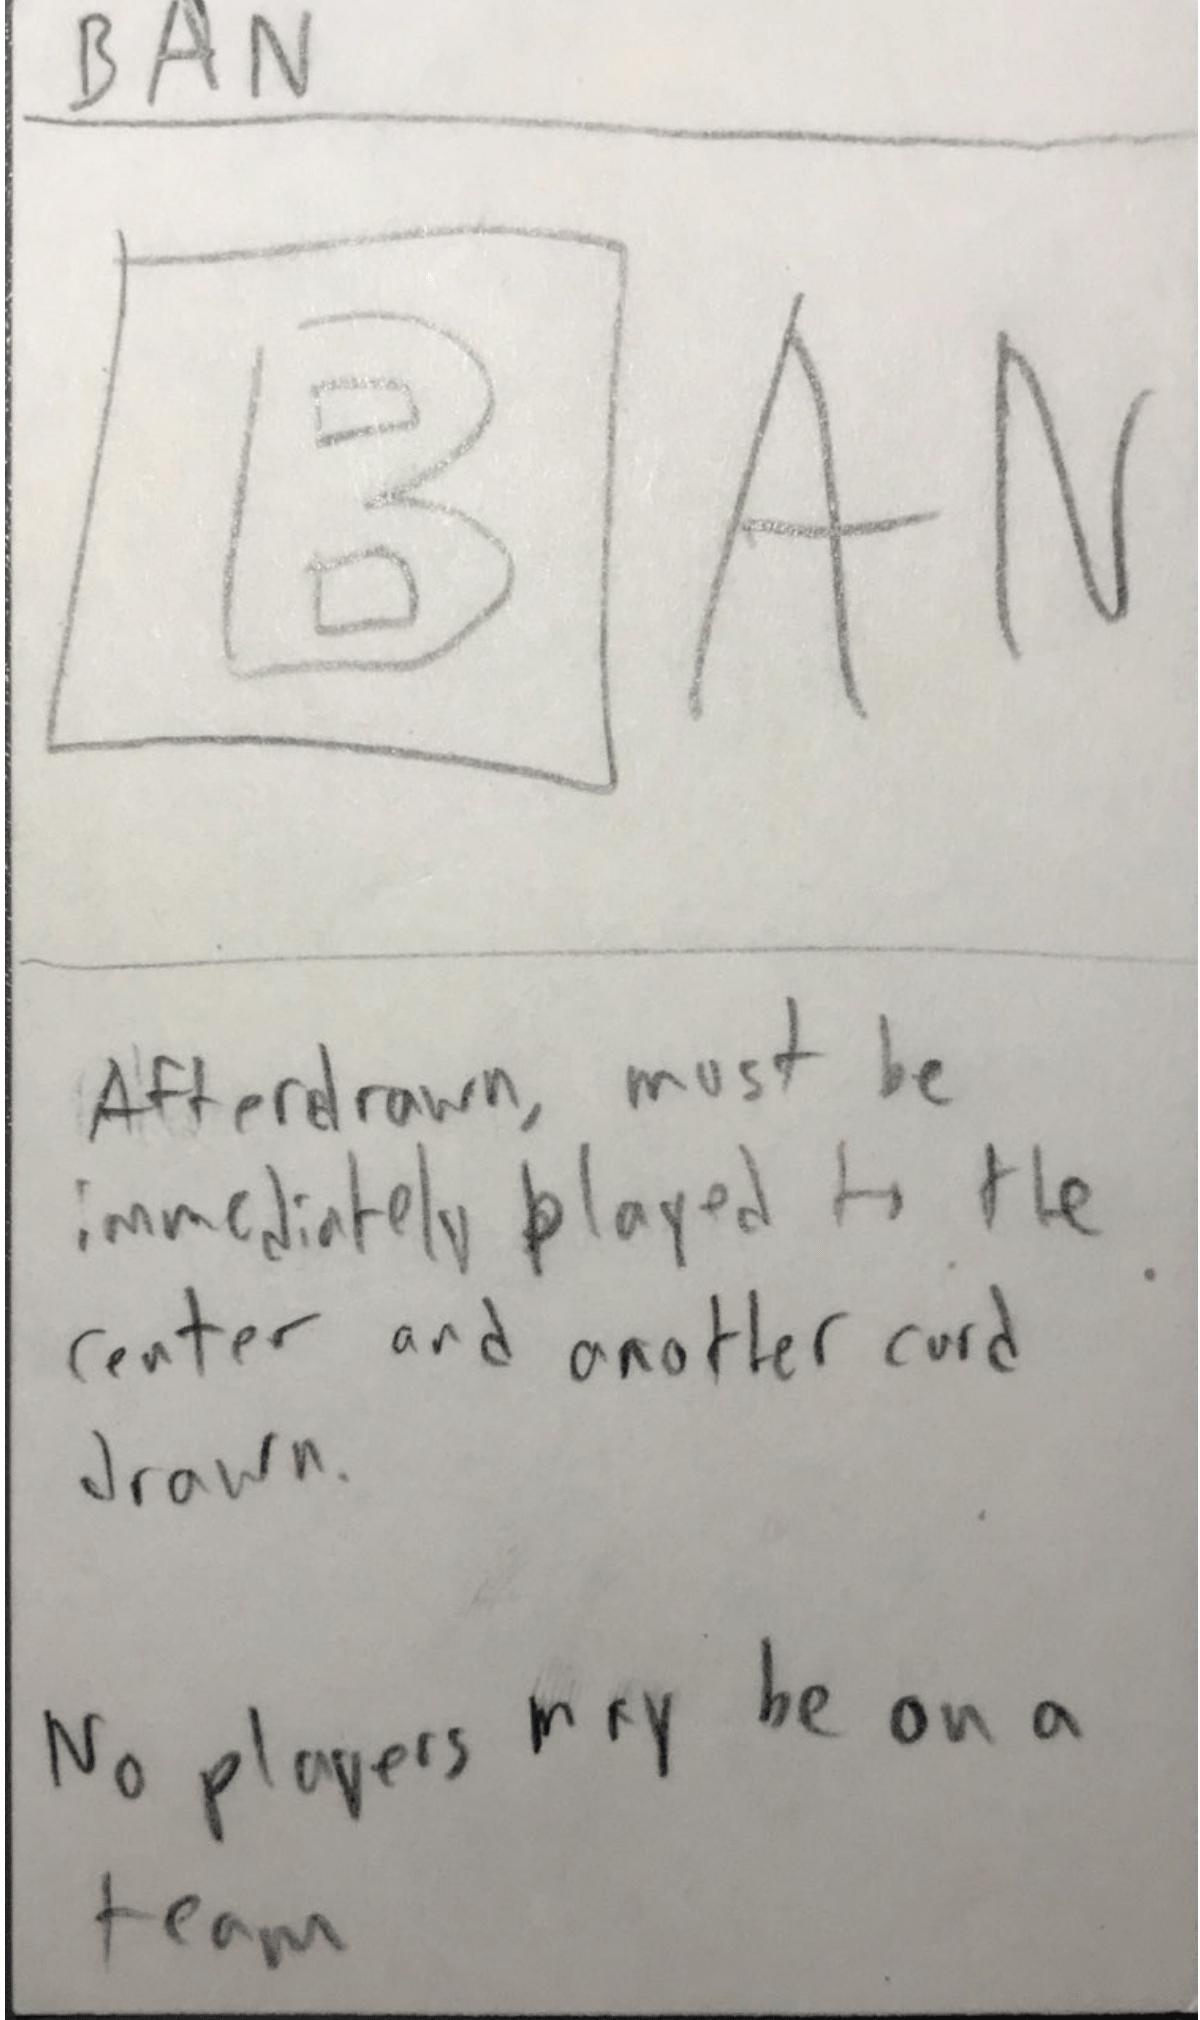 BAN
BAN
Afterdrawn, must be
immediately played to the
center and another card
drawn.
No players may be on a
team